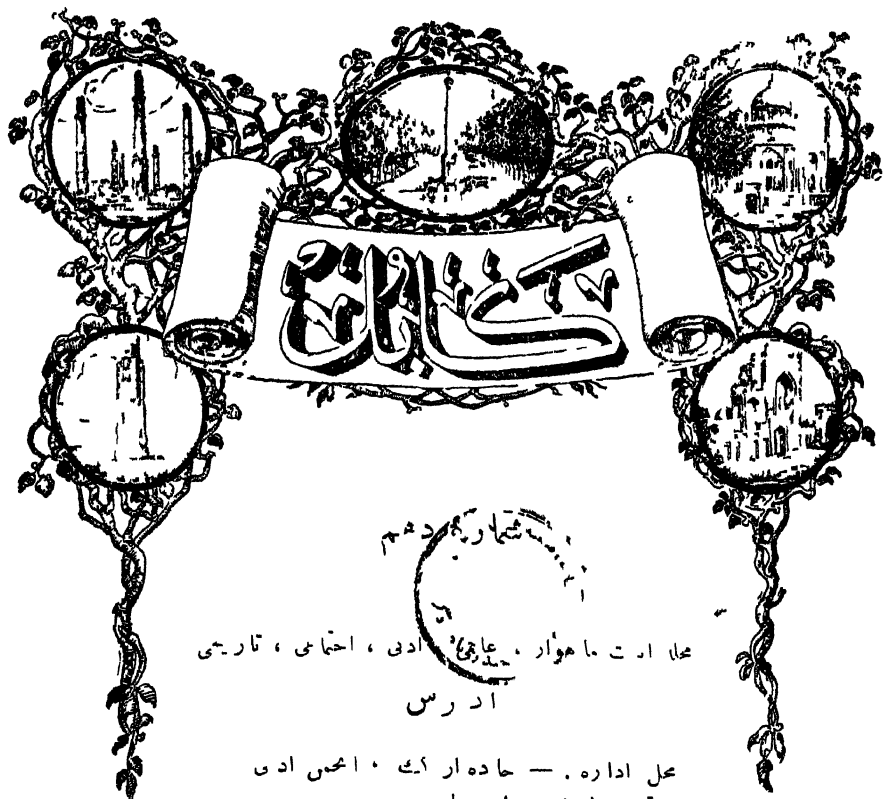 کابل
شماره دهم
مجله ایست ماهوار ، ادبی ، اجتماعی ، تاریخی
ادرس
محل اداره . — جاده ارگ ، انجمن ادبی